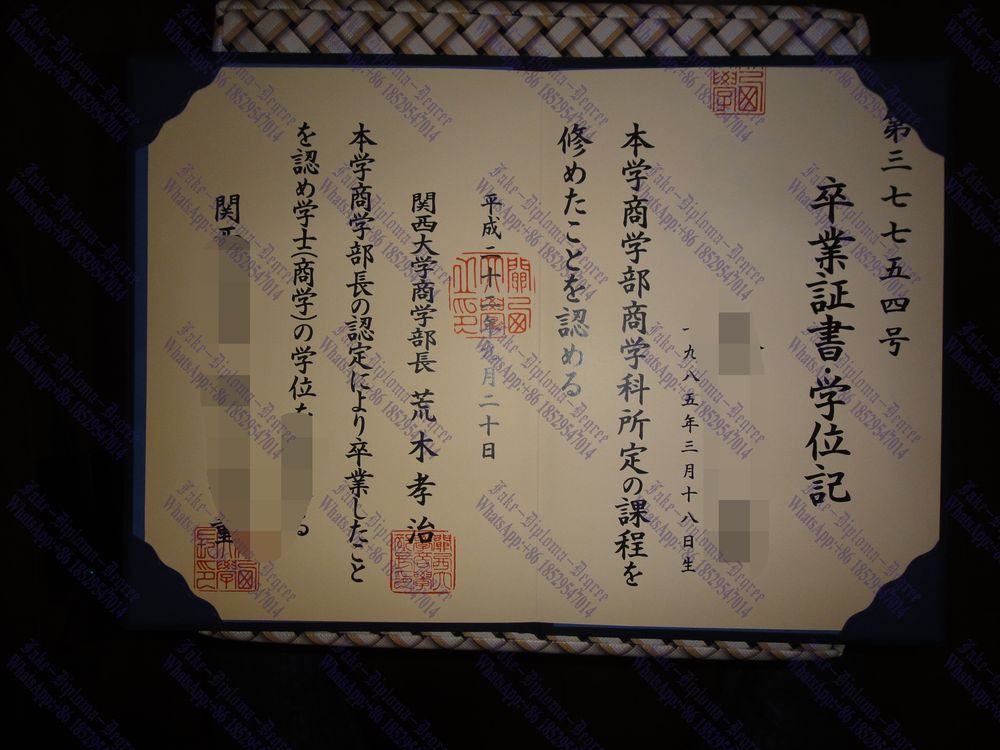 第三七七五四号
卒業証書・学位記
一九八五年三月十八日生
本学商学部商学科所定の課程を
修めたことを認める
平成二十 年 月二十日
関西大学商学部長 荒木孝治
本学商学部長の認定により卒業したこと
を認め学士(商学)の学位を る
関西
Fake-Diploma-Degree
WhatsApp:+86 18529547014